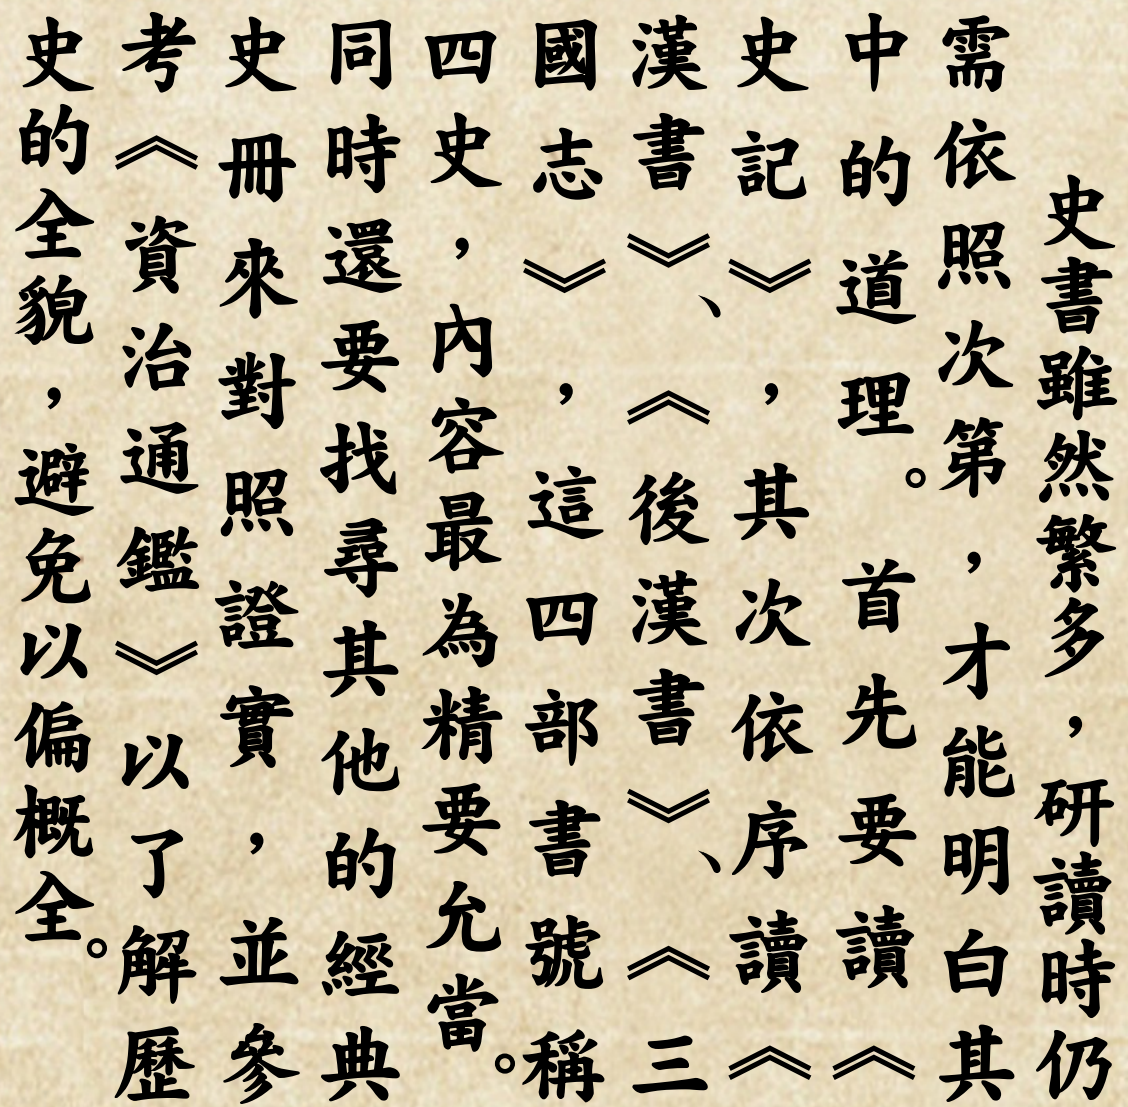 史書雖然繁多，研讀時仍
需依照次第，才能明白其
中的道理。首先要讀《
史記》，其次依序讀《
漢書》、《後漢書》、《三
國志》，這四部書號稱
四史，內容最為精要允當。
同時還要找尋其他的經典
史冊來對照證實，並參
考《資治通鑑》以了解歷
史的全貌，避免以偏概全。